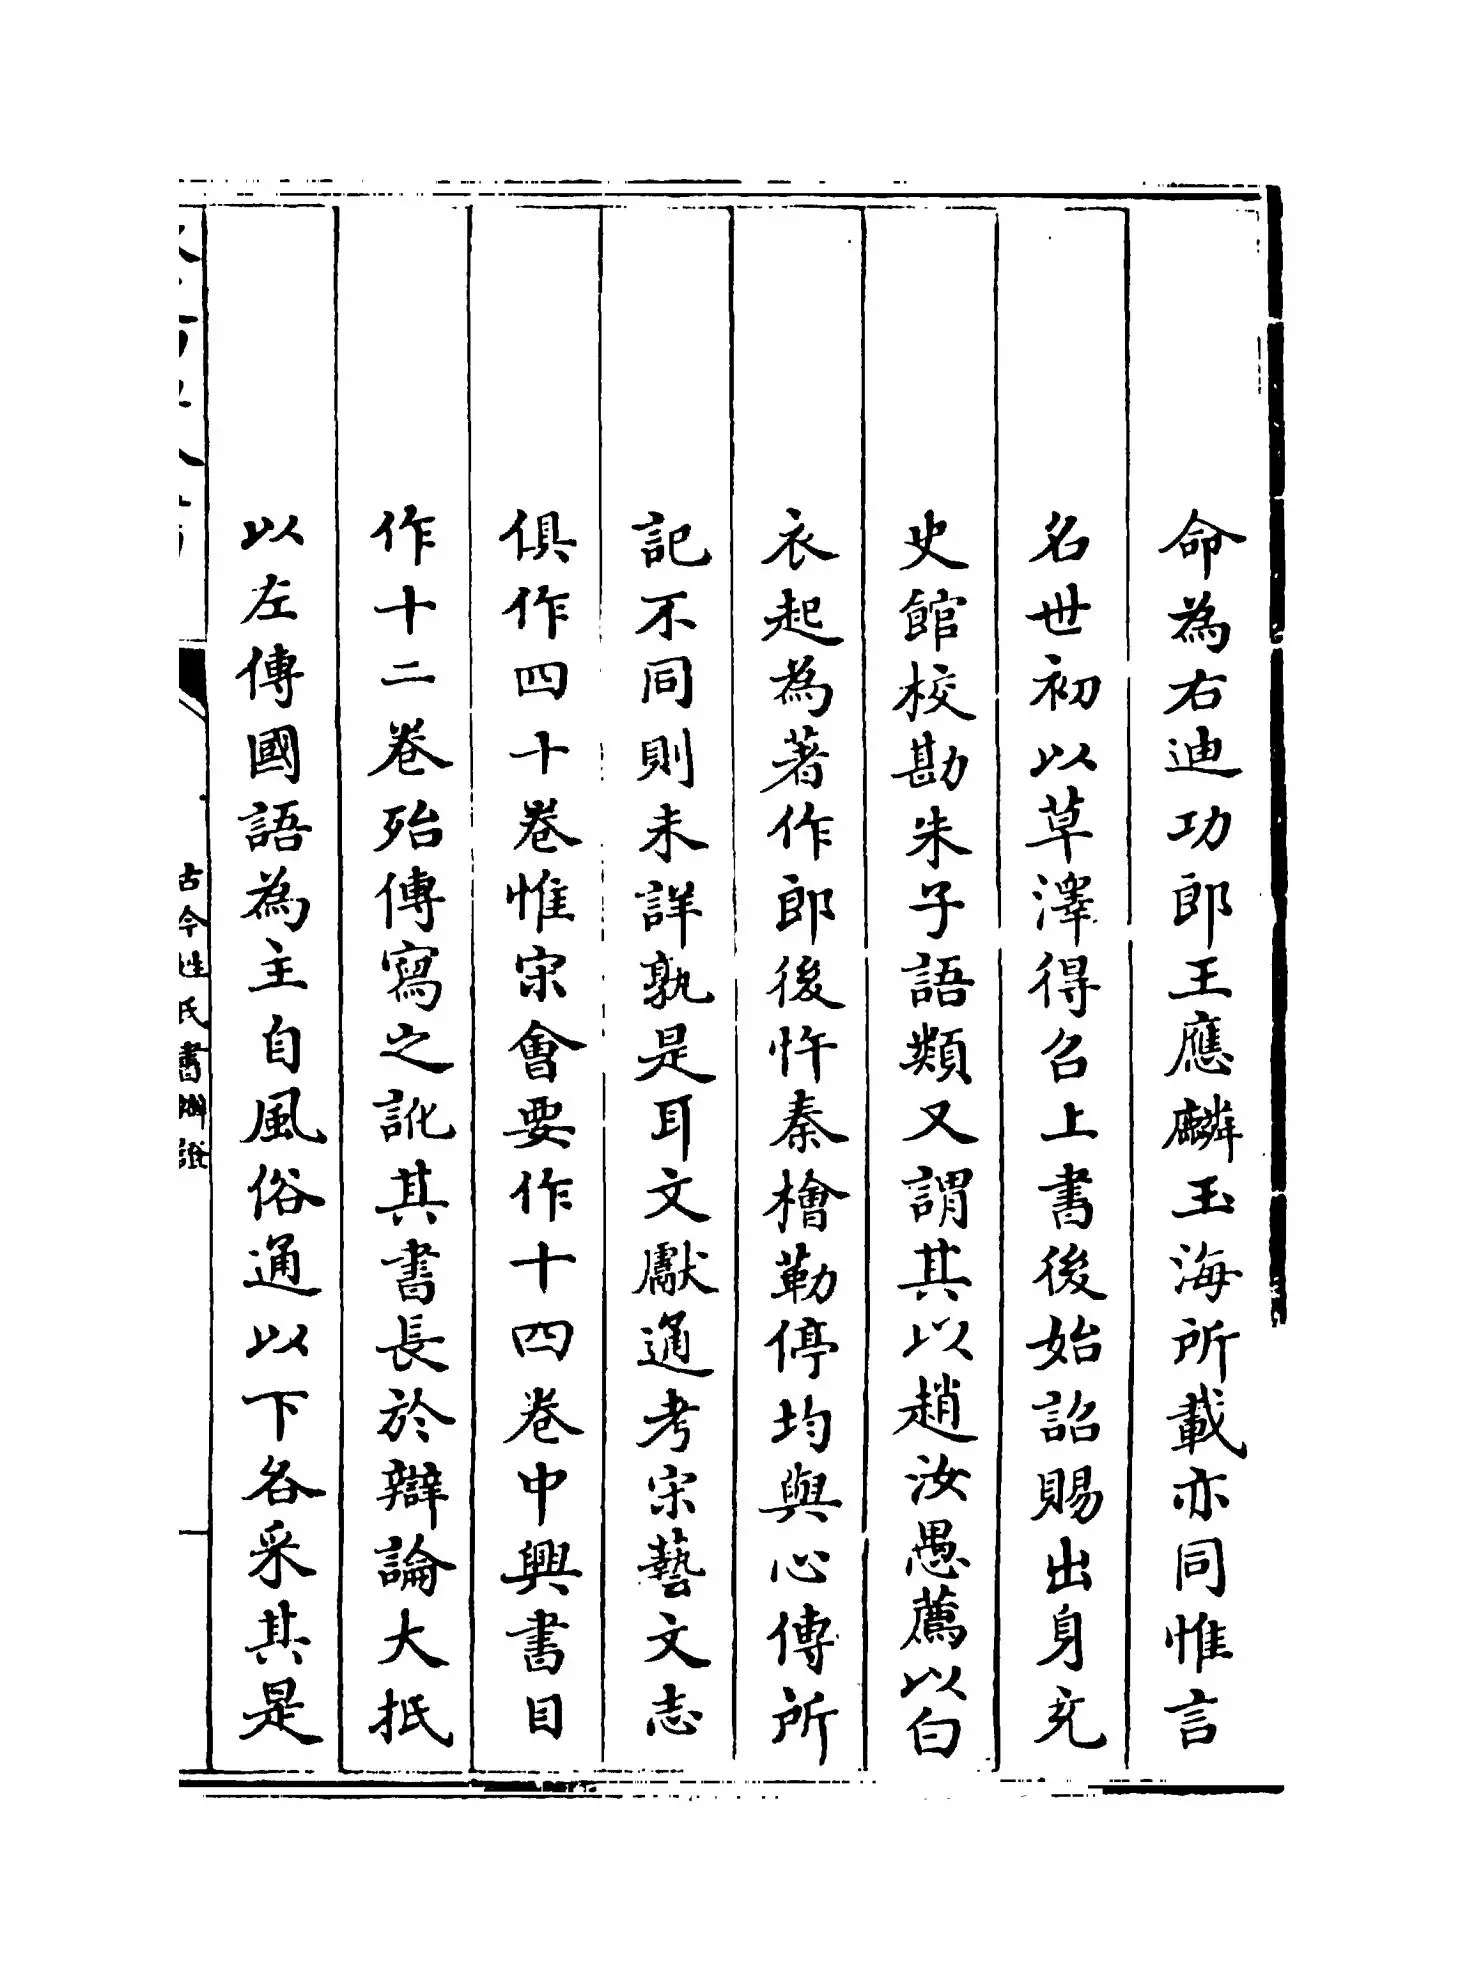 命為右迪功郎王應麟玉海所載亦同惟言
名世初以草澤得召上書後始詔賜出身充
史館校勘朱子語類又謂其以趙汝愚薦以白
衣起為著作郎後忤秦檜勒停均與心傳所
記不同則未詳孰是耳文獻通考宋藝文志
俱作四十卷惟宋會要作十四卷中興書目
作十二卷殆傳寫之訛其書長於辯論大抵
以左傳國語為主自風俗通以下各采其是
古今姓氏書辯證